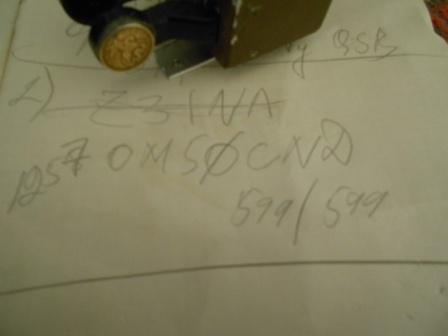 y QSB
2) Z31NA
1257 OM5ØCND
599/599